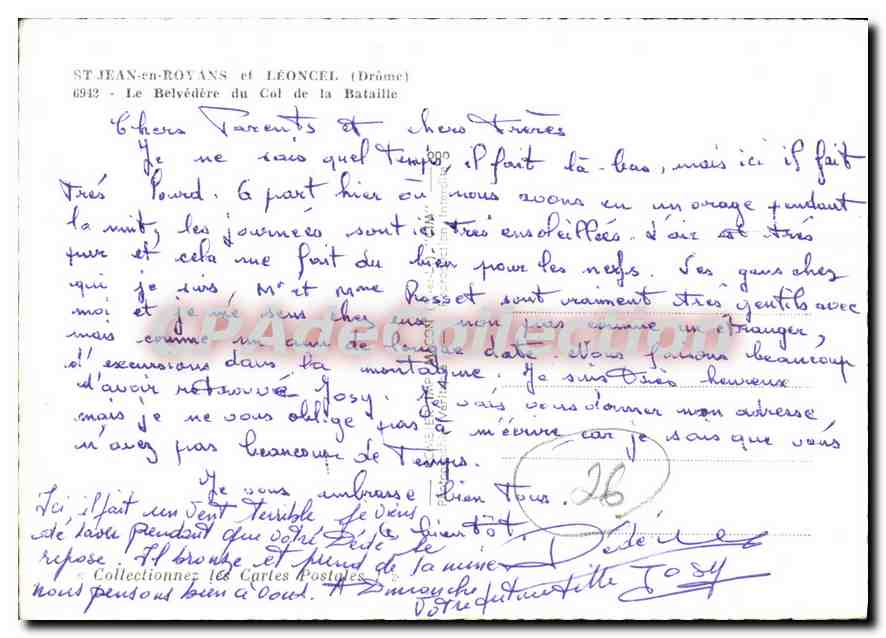 ST JEAN-en-ROYANS et LÉONCEL (Drôme)
6942 - Le Belvédère du Col de la Bataille
Chers Parents et chers Frères
Je ne sais quel Temps, il fait là-bas, mais ici il fait
très lourd. A part hier où nous avons eu un orage pendant
la nuit, les journées sont ici très ensoleillées. L'air est très
pur et cela me fait du bien pour les nerfs. Les gens chez
qui je suis Mr et Mme Rosset sont vraiment très gentils avec
moi et je me sens chez eux non pas comme un étranger,
mais comme un ami de longue date. Nous faisons beaucoup
d'excursions dans la montagne. Je suis très heureux
d'avoir retrouvé Josy. Je vais vous donner mon adresse
mais je ne vous oblige pas à m'écrire car je sais que vous
n'avez pas beaucoup de Temps.
Je vous embrasse bien Tous.
26
à bientôt. Dédé
Ici il fait un vent terrible je viens
de laver pendant que votre Dédé se
repose. Il bronze et prend de la mine
« Collectionnez les Cartes Postales »
nous pensons bien à vous. A Dimanche
Votre fille Josy
CPAdeCollection